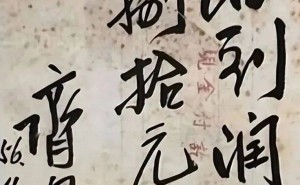 到润
捌拾元
金付訖
齊
56.